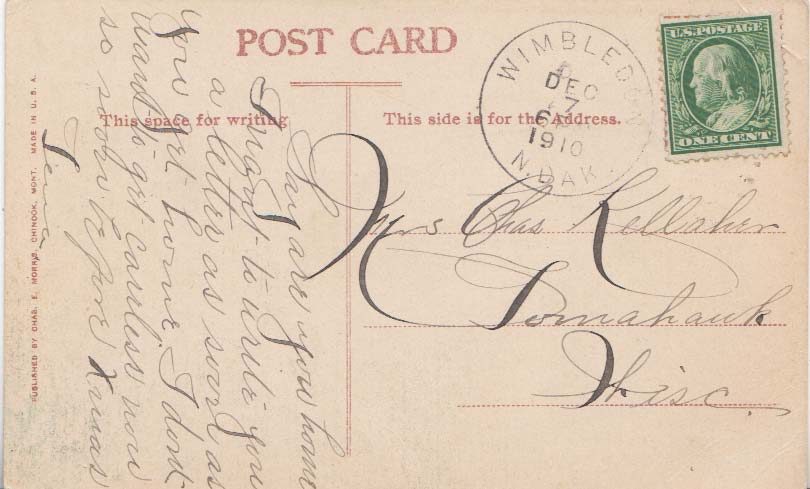 POST CARD
This space for writing
This side is for the Address.
WIMBLEDON
DEC
7
1910
N.DAK.
U.S. POSTAGE
ONE CENT
Mrs Chas Kelliher
Tomahawk
Wisc.
Say are you home
I ought to write you
a letter as soon as
you get home. I dont
want to get careless now
so soon before Xmas
Lena
PUBLISHED BY CHAS. E. MORRIS, CHINOOK, MONT. MADE IN U. S. A.